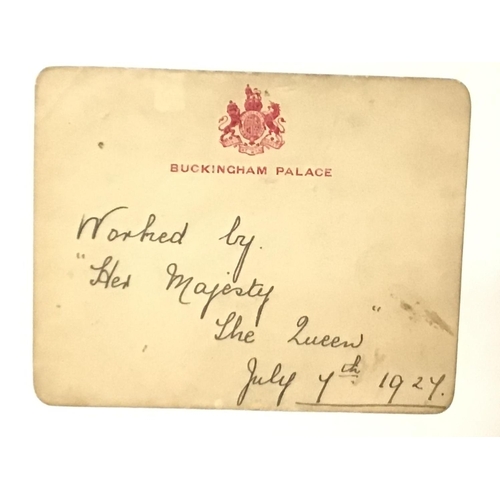 BUCKINGHAM PALACE
Worked by.
"Her Majesty
The Queen"
July 7th 1927.